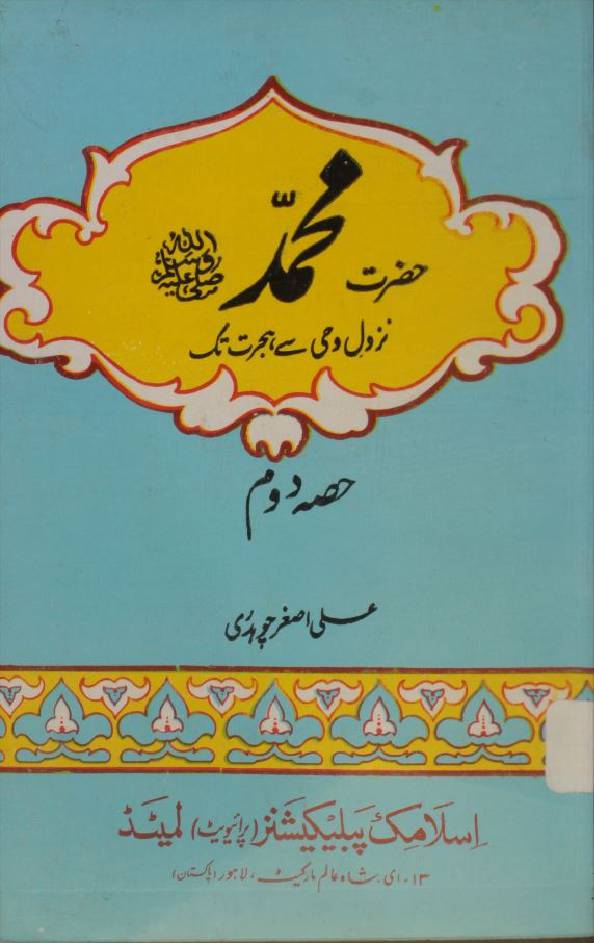 حضرت محمّد صلی اللہ علیہ وسلم
نزولِ وحی سے ہجرت تک
حصہ دوم
علی اصغر چوہدری
اسلامک پبلیکیشنز (پرائیویٹ) لمیٹڈ
۱۳۔ ای، شاہ عالم مارکیٹ، لاہور (پاکستان)